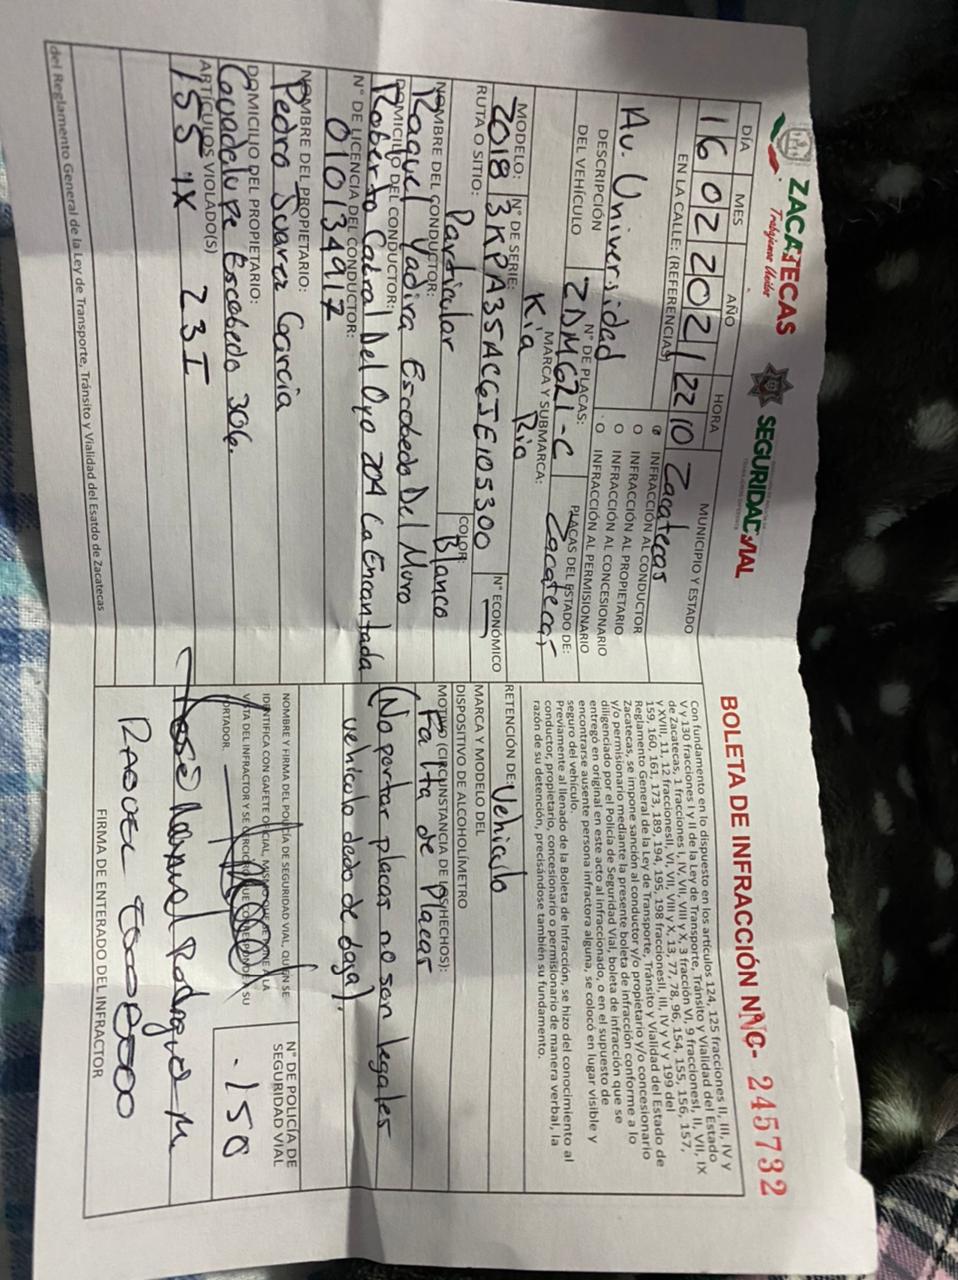 ZACATECAS
Trabajemos Unidos
SEGURIDAD VIAL
BOLETA DE INFRACCIÓN NNC- 245732
DÍA MES AÑO HORA MUNICIPIO Y ESTADO
16 02 2021 22 10 Zacatecas
EN LA CALLE: (REFERENCIAS)
Av. Universidad
INFRACCIÓN AL CONDUCTOR
INFRACCIÓN AL PROPIETARIO
INFRACCIÓN AL CONCESIONARIO
INFRACCIÓN AL PERMISIONARIO
DESCRIPCIÓN DEL VEHÍCULO
N° DE PLACAS:
ZDMG21-C
PLACAS DEL ESTADO DE:
Zacatecas
MARCA Y SUBMARCA:
Kia Rio
MODELO: N° DE SERIE: N° ECONÓMICO
2018 3KPA35ACGJE105300 —
RUTA O SITIO: COLOR:
Particular Blanco
NOMBRE DEL CONDUCTOR:
Raquel Yadira Escobedo Del Muro
DOMICILIO DEL CONDUCTOR:
Roberto Cabral Del Oyo 204 La Encantada
N° DE LICENCIA DEL CONDUCTOR:
010134917
NOMBRE DEL PROPIETARIO:
Pedro Juarez Garcia
DOMICILIO DEL PROPIETARIO:
Guadalupe Escobedo 306.
ARTÍCULOS VIOLADO(S)
155 IX 23 I
del Reglamento General de la Ley de Transporte, Tránsito y Vialidad del Esatdo de Zacatecas
Con fundamento en lo dispuesto en los artículos 124, 125 fracciones II, III, IV y
V y 130 fracciones I y II de la Ley de Transporte, Tránsito y Vialidad del Estado
de Zacatecas, 1 fracciones I, IV, VII, VIII y X, 3 fracción VI, 9 fraccionesI, II, VII, IX
y XVIII, 11, 12 fraccionesII, VI, VII, VIII y X, 13, 77, 78, 96, 154, 155, 156, 157,
159, 160, 161, 173, 189, 194, 195, 198 fraccionesII, III, IV y V y 199 del
Reglamento General de la Ley de Transporte, Tránsito y Vialidad del Estado de
Zacatecas, se impone sanción al conductor y/o propietario y/o concesionario
y/o permisionario mediante la presente boleta de infracción conforme a lo
diligenciado por el Policía de Seguridad Vial, boleta de infracción que se
entregó en original en este acto al infraccionado, o en el supuesto de
encontrarse ausente persona infractora alguna, se colocó en lugar visible y
seguro del vehículo.
Previamente al llenado de la Boleta de Infracción, se hizo del conocimiento al
conductor, propietario, concesionario o permisionario de manera verbal, la
razón de su detención, precisándose también su fundamento.
RETENCIÓN DE: Vehiculo
MARCA Y MODELO DEL
DISPOSITIVO DE ALCOHOLÍMETRO
MOTIVO (CIRCUNSTANCIA DE LOS HECHOS):
Falta de Placas
(No portar placas no son legales
vehiculo dado de baja)
NOMBRE Y FIRMA DEL POLICÍA DE SEGURIDAD VIAL, QUIEN SE
IDENTIFICA CON GAFETE OFICIAL, MISMO QUE SE PONE A LA
VISTA DEL INFRACTOR Y SE
PORTADOR.
N° DE POLICÍA DE
SEGURIDAD VIAL
150
José Manuel Rodriguez M
FIRMA DE ENTERADO DEL INFRACTOR